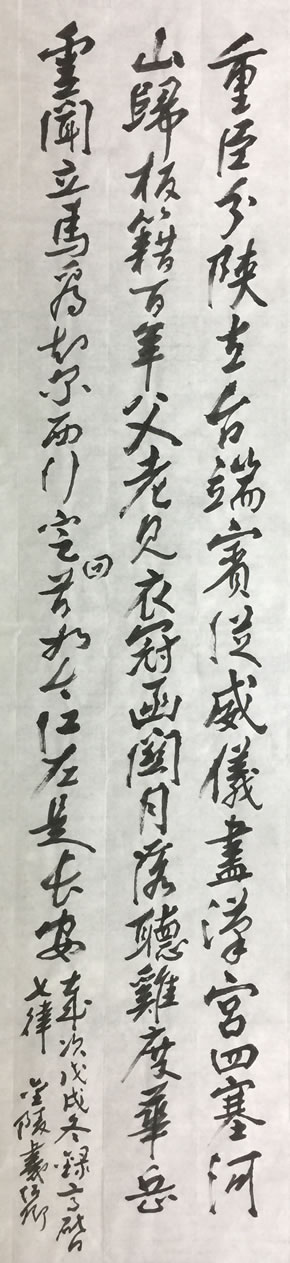 重臣分陝去台端賓從威儀盡漢宫四塞河
山歸板籍百年父老見衣冠函關月落聽雞度華岳
雲開立馬看知尔西行定回首如今江左是長安
歲次戊戌冬録高啓
七律 金陵